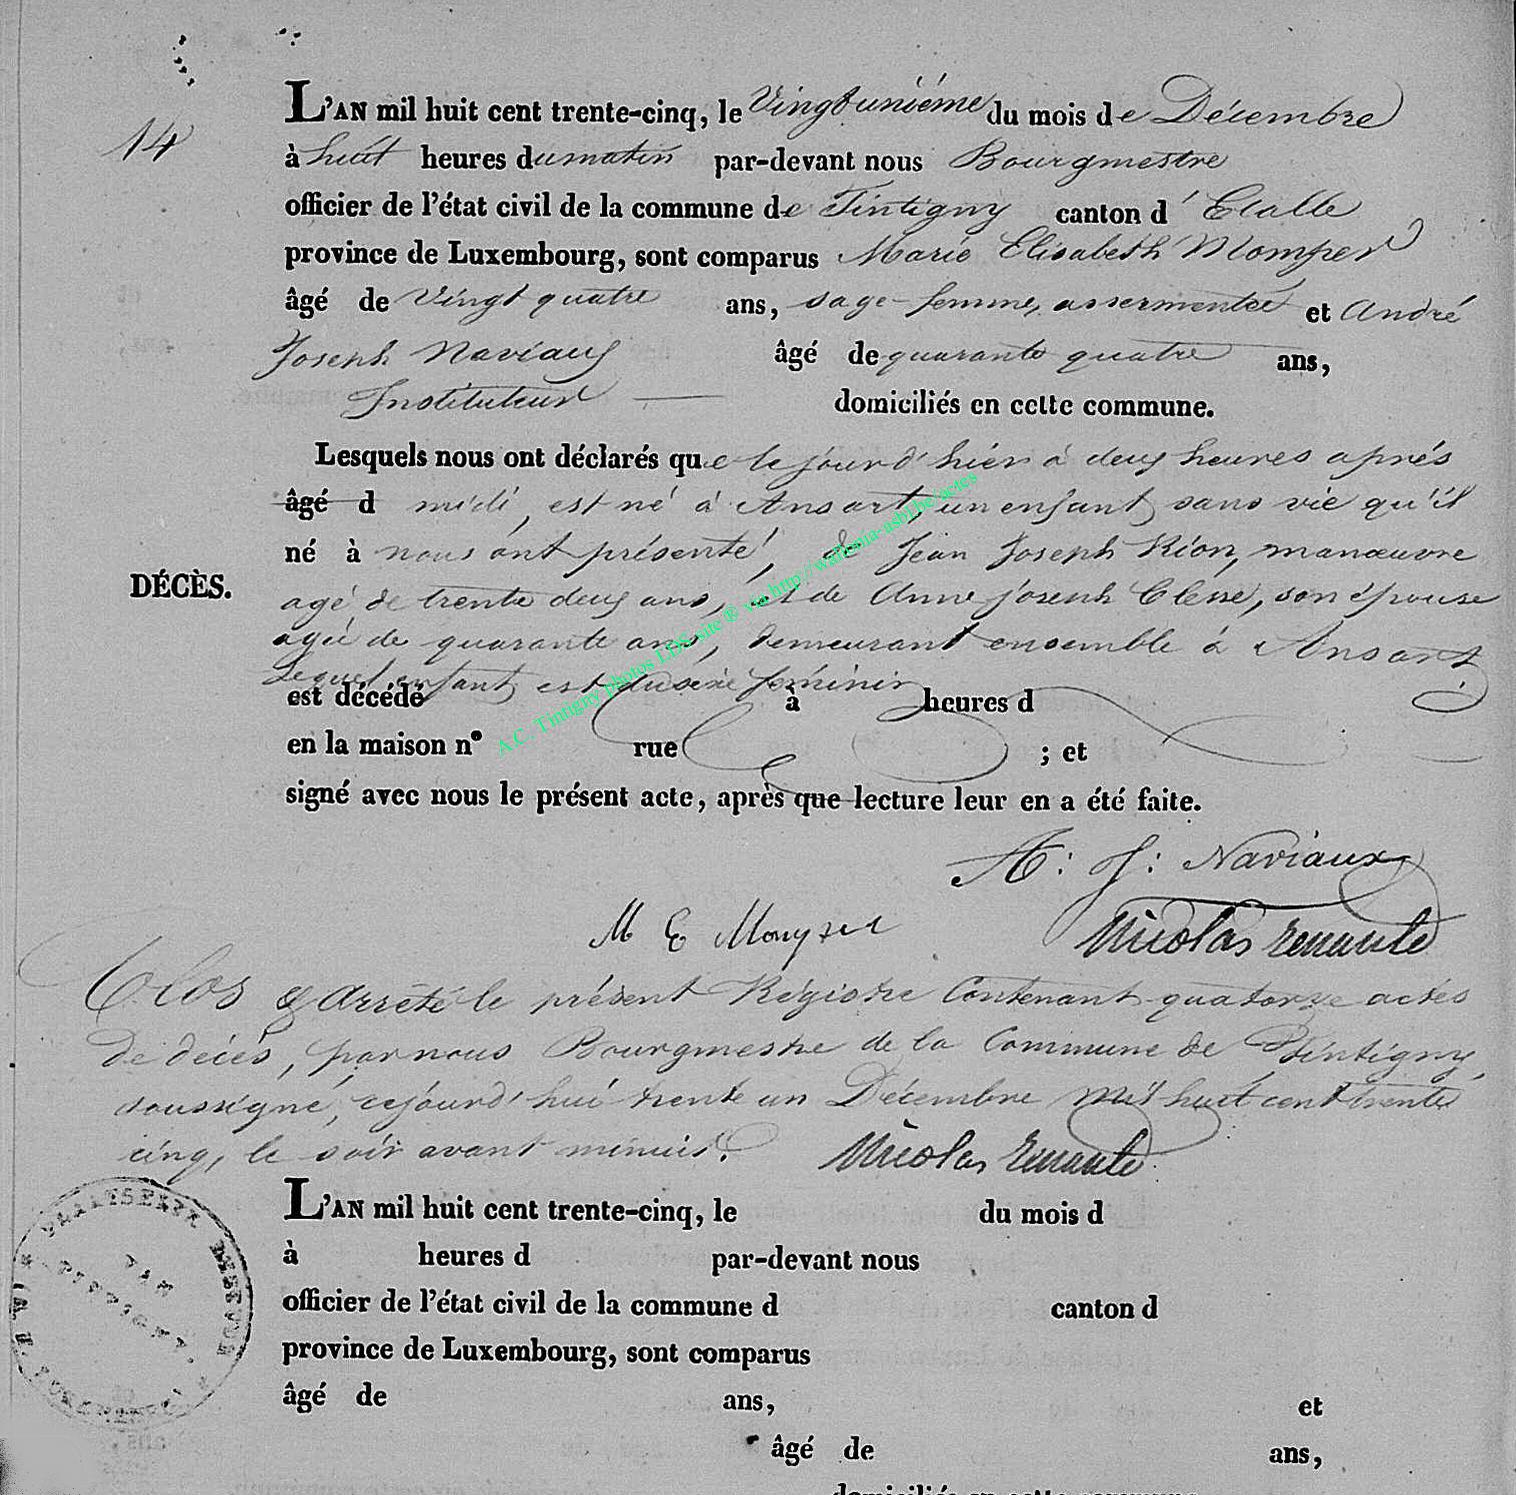 14
L'AN mil huit cent trente-cinq, le Vingtunième du mois de Décembre
à huit heures du matin par-devant nous Bourgmestre
officier de l'état civil de la commune de Tintigny canton d'Etalle
province de Luxembourg, sont comparus Marie Elisabeth Momper
âgé de Vingt quatre ans, sage-femme, assermentée et André
Joseph Naviaux âgé de quarante quatre ans,
Instituteur domiciliés en cette commune.
Lesquels nous ont déclarés que le jour d'hier à deux heures après
âgé d midi, est né à Ansart, un enfant sans vie qu'il
né à nous ont présenté, de Jean Joseph Rion, manœuvre
DÉCÈS.
agé de trente deux ans, et de Anne joseph Clesse, son épouse
agée de quarante ans, demeurant ensemble à Ansart
Lequel enfant est du sexe féminin
est décédé à heures d
en la maison n° rue ; et
signé avec nous le présent acte, après que lecture leur en a été faite.
A: J: Naviaux
M E Momper
Nicolas
Clos & Arrêté le présent Régistre Contenant quatorze actes
de décès, par nous Bourgmestre de la Commune de Tintigny,
soussigné, cejourd'hui trente un Décembre mil huit cent trente
cinq, le soir avant minuit.
Nicolas
L'AN mil huit cent trente-cinq, le du mois d
à heures d par-devant nous
officier de l'état civil de la commune d canton d
province de Luxembourg, sont comparus
âgé de ans, et
âgé de ans,
domiciliés en cette commune.
A.C. Tintigny photos LDS site ® via http://wallonia-asbl.be/actes